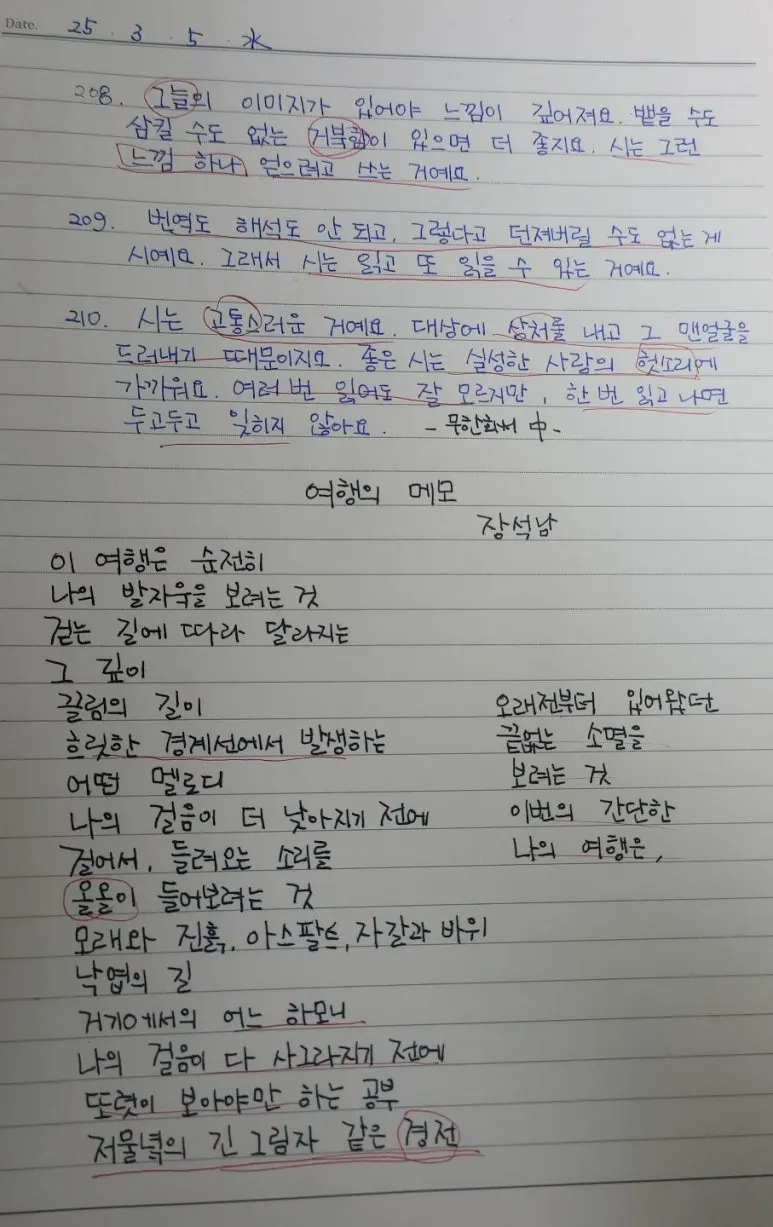 Date. 25 . 3 . 5 . 水
208. 그늘의 이미지가 있어야 느낌이 깊어져요. 뱉을 수도
삼킬 수도 없는 거북함이 있으면 더 좋지요. 시는 그런
느낌 하나 얻으려고 쓰는 거예요.
209. 번역도 해석도 안 되고, 그렇다고 던져버릴 수도 없는 게
시예요. 그래서 시는 읽고 또 읽을 수 있는 거예요.
210. 시는 고통스러운 거예요. 대상에 상처를 내고 그 맨얼굴을
드러내기 때문이지요. 좋은 시는 실성한 사람의 헛소리에
가까워요. 여러 번 읽어도 잘 모르지만, 한 번 읽고 나면
두고두고 잊히지 않아요. - 무한화서 中 -
여행의 메모
장석남
이 여행은 순전히
나의 발자욱을 보려는 것
걷는 길에 따라 달라지는
그 깊이
끌림의 길이
흐릿한 경계선에서 발생하는
어떤 멜로디
나의 걸음이 더 낮아지기 전에
걸어서, 들려오는 소리를
올올이 들어보려는 것
모래와 진흙, 아스팔트, 자갈과 바위
낙엽의 길
거기에서의 어느 하모니
나의 걸음이 다 사그라지기 전에
또렷이 보아야만 하는 공부
저물녘의 긴 그림자 같은 경전
오래전부터 있어왔던
끝없는 소멸을
보려는 것
이번의 간단한
나의 여행은,